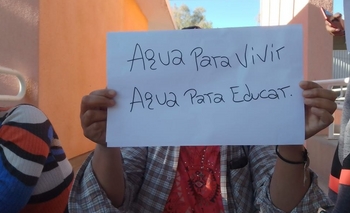 Agua Para Vivir
Agua Para Educar.